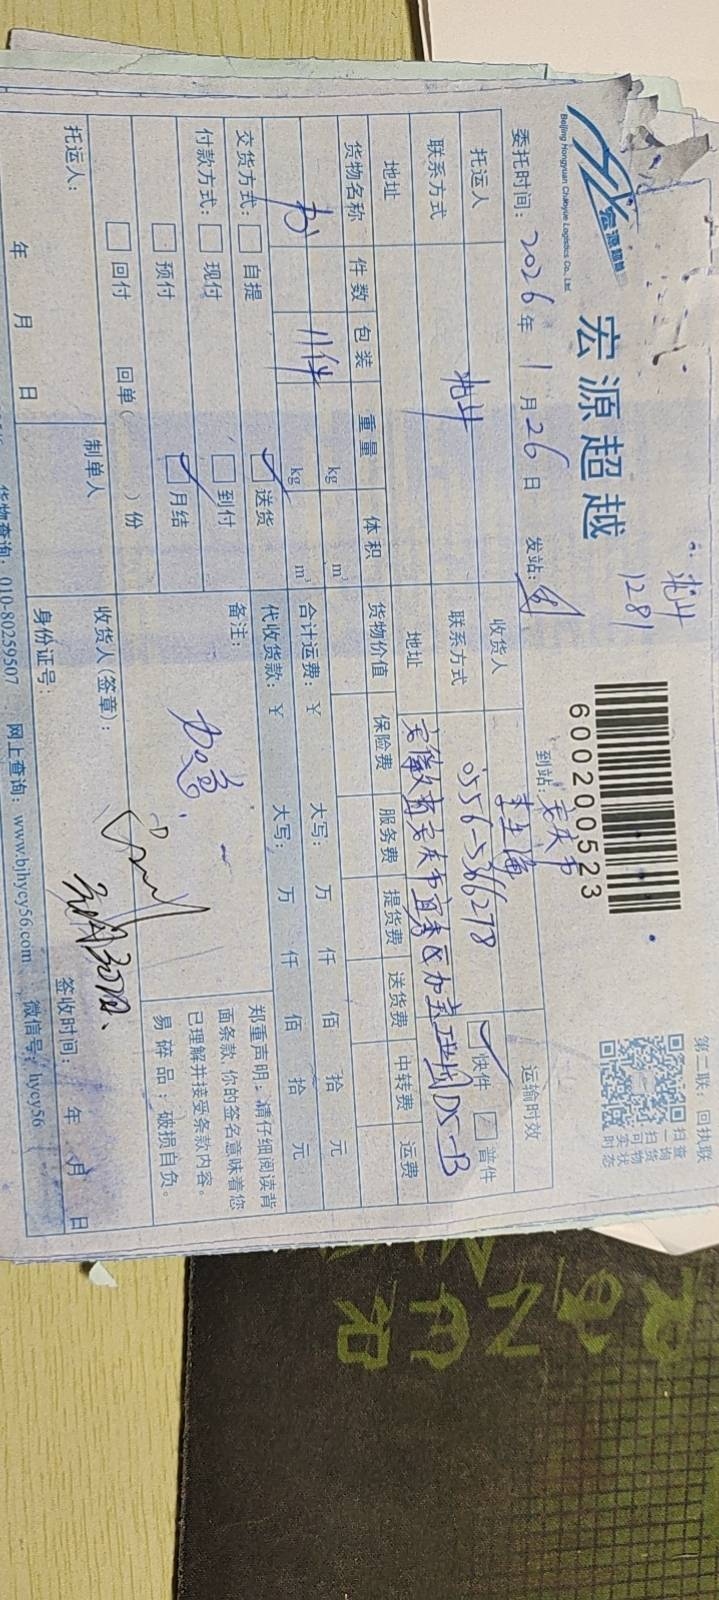 宏源超越
Beijing Hongyuan Chaoyue Logistics Co., Ltd.
宏源超越
1281
600200523
第二联：回执联
扫一扫可查询货物实时状态
委托时间：2026年1月26日 发站：
到站：安庆市
运输时效
托运人
收货人
快件 普件
联系方式
联系方式 0556-5366278
地址
地址 安徽省安庆市宜秀区
货物名称 件数 包装 重量 体积 货物价值 保险费 服务费 提货费 送货费 中转费 运费
kg m³
书 11件 kg m³
合计运费：￥ 大写： 万 仟 佰 拾 元
代收货款：￥ 大写： 万 仟 佰 拾 元
交货方式： 自提 送货
付款方式： 现付 到付
预付 月结
回付 回单（ ）份
备注： 加急
郑重声明：请仔细阅读背面条款,你的签名意味着您已理解并接受条款内容。
易碎品：破损自负。
托运人：
制单人
收货人(签章)：
年 月 日
身份证号：
签收时间： 年 月 日
货物查询：010-80259507 网上查询：www.bjhycy56.com 微信号：hycy56